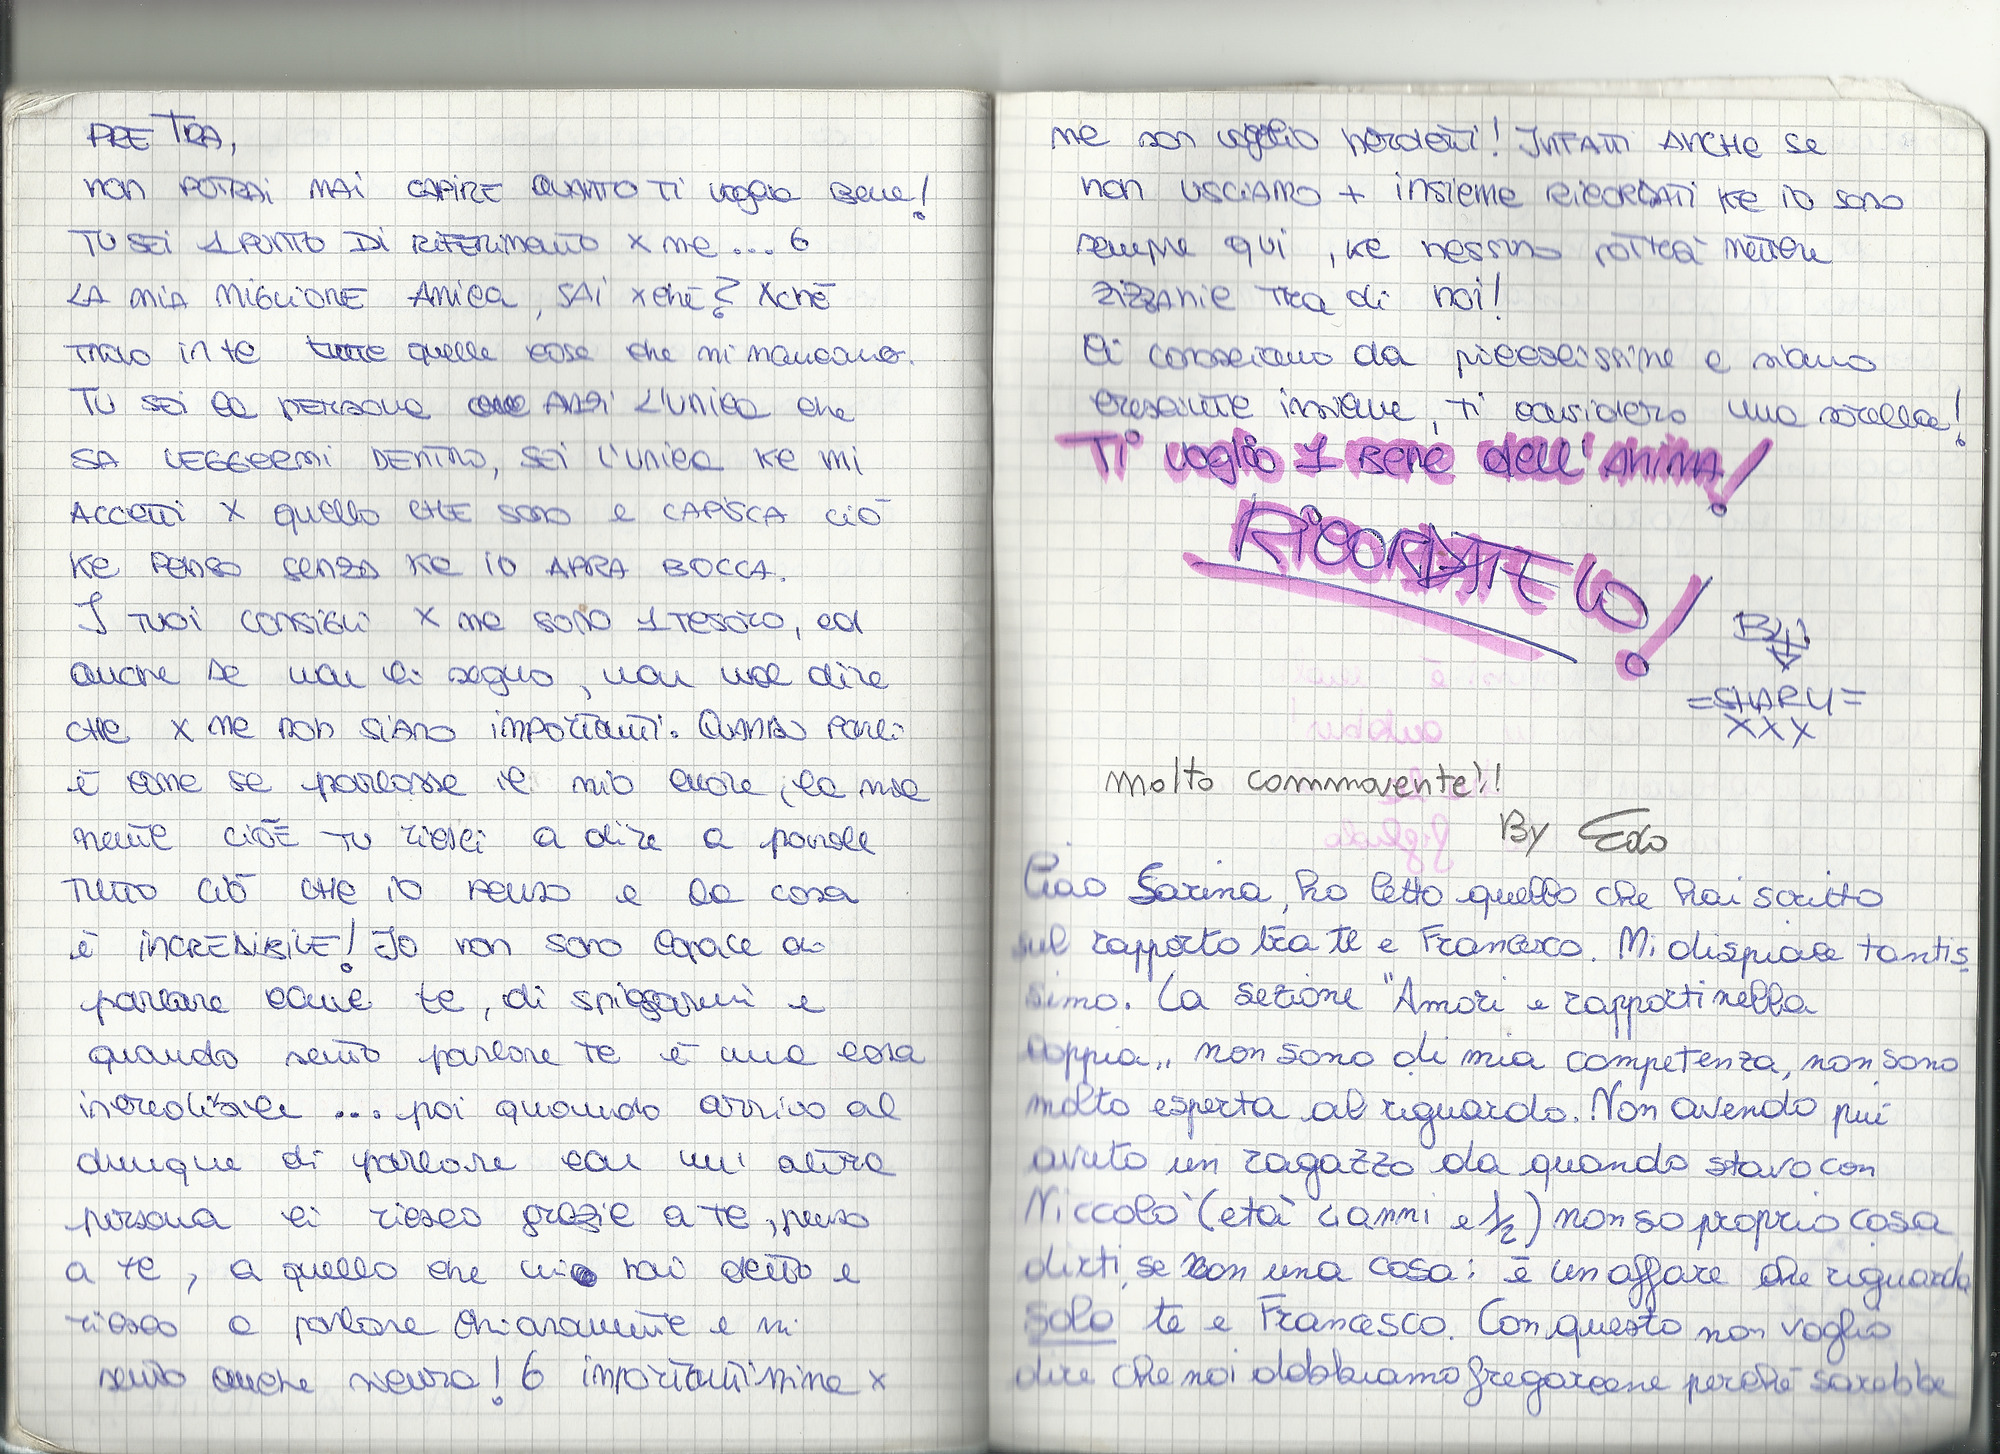 PRETRA,
non POTRAI MAI CAPIRE QUANTO TI voglio Bene!
TU SEI 1 PUNTO DI RIFERIMENTO X me... 6
LA MIA MIGLIORE AMICA, SAI xchè? Xchè
TROVO in te tutte quelle cose che mi mancano.
TU SEI la PERSONA ANZI L'UNICA che
SA LEGGERMI DENTRO, SEI L'UNICA KE MI
ACCETTI X quello CHE SONO e CAPISCA ciò
KE PENSO SENZA KE IO APRA BOCCA.
I TUOI CONSIGLI X me SONO 1 TESORO, ed
anche se non li seguo, non vuol dire
CHE X me non SIANO IMPORTANTI. QUANDO PARLI
è come se parlasse il mio cuore, la mia
mente cioè TU riesci a dire a parole
TUTTO ciò CHE IO PENSO e la cosa
è INCREDIBILE! Io non SONO capace di
parlare come te, di spiegarmi e
quando sento parlare Te è una cosa
incredibile ... poi quando arrivo al
dunque di parlare con un'altra
persona ci riesco grazie a te, penso
a te, a quello che mi hai detto e
riesco a parlare chiaramente e mi
sento anche sicura! 6 importantissima x
me non voglio perderti! INFATTI ANCHE se
non USCIAMO + insieme RICORDATI KE IO sono
sempre qui, KE nessuno potrà mettere
zizzanie tra di noi!
Ci conosciamo da piccolissime e siamo
cresciute insieme, ti considero una sorella!
Ti voglio 1 Bene dell'ANIMA!
RICORDATELO!
By
=SHARY=
XXX
Molto commovente!!
By Edo
Ciao Sarina, ho letto quello che hai scritto
sul rapporto tra te e Francesco. Mi dispiace tantis
simo. La sezione "Amori e rapporti nella
coppia" non sono di mia competenza, non sono
molto esperta al riguardo. Non avendo più
avuto un ragazzo da quando stavo con
Niccolò (età 4 anni e 1/2) non so proprio cosa
dirti, se non una cosa: è un affare che riguarda
solo te e Francesco. Con questo non voglio
dire che noi dobbiamo fregarcene perché sarebbe